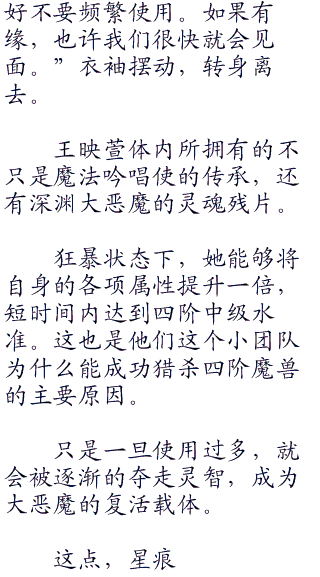 好不要频繁使用。如果有
缘，也许我们很快就会见
面。”衣袖摆动，转身离
去。
王映萱体内所拥有的不
只是魔法吟唱使的传承，还
有深渊大恶魔的灵魂残片。
狂暴状态下，她能够将
自身的各项属性提升一倍，
短时间内达到四阶中级水
准。这也是他们这个小团队
为什么能成功猎杀四阶魔兽
的主要原因。
只是一旦使用过多，就
会被逐渐的夺走灵智，成为
大恶魔的复活载体。
这点，星痕